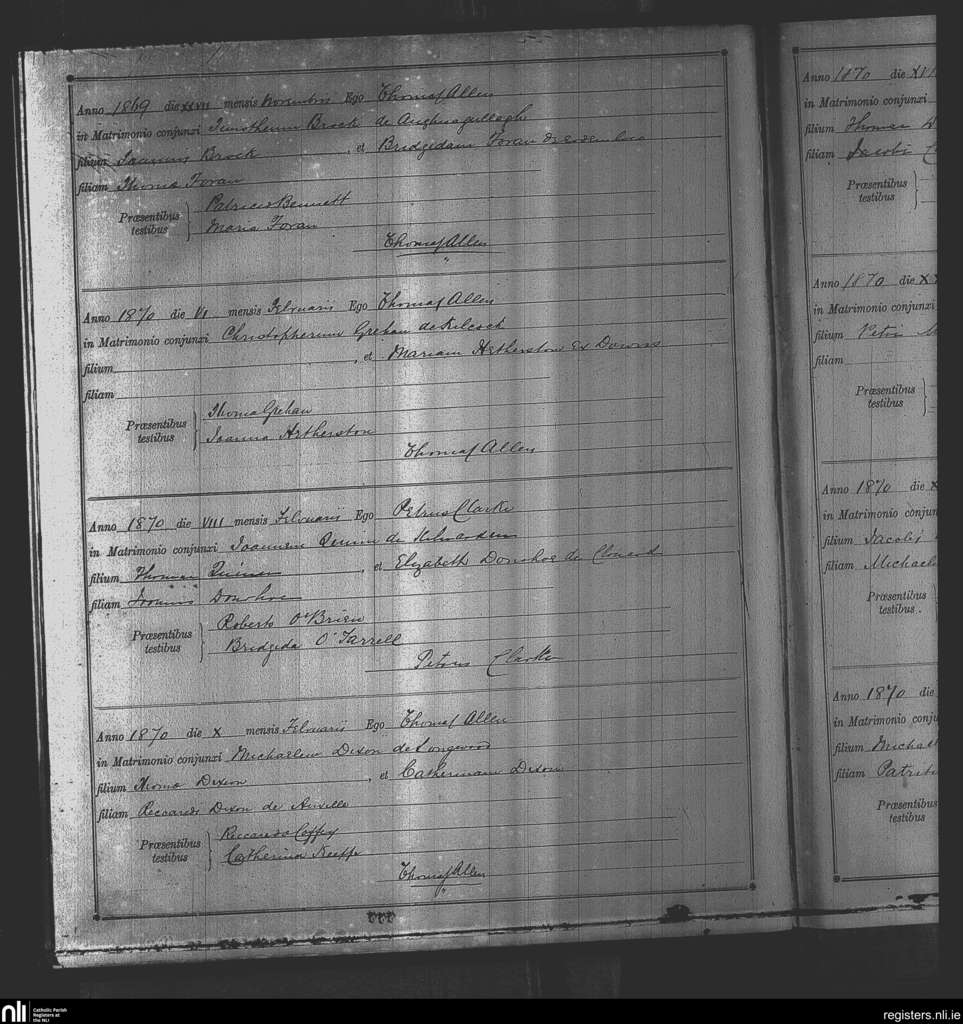 Anno 1869 die XXVII mensis Novembris Ego Thomas Allen
in Matrimonio conjunxi Brock de
filium Joannis Brock, et Bridgidam Foran
filiam Thoma Foran
Præsentibus testibus Patricio Bennett
Maria Foran
Thomas Allen
Anno 1870 die VI mensis Februarii Ego Thomas Allen
in Matrimonio conjunxi Christopherum Grehan de Kilcock
filium , et Mariam Artherston Ex Downs
filiam
Præsentibus testibus Thoma Grehan
Joanna Artherston
Thomas Allen
Anno 1870 die VIII mensis Februarii Ego Petrus Clarke
in Matrimonio conjunxi Joannem Quinn de
filium Thomae , et Elizabeth Donohoe de Clonard
filiam Joannis Donohoe
Præsentibus testibus Roberto O'Brien
Bridgida O'Farrell
Petrus Clarke
Anno 1870 die X mensis Februarii Ego Thomas Allen
in Matrimonio conjunxi Michaelem Dixon de Longwood
filium Dixon, et Catherinam Dixon
filiam Riccardi Dixon de
Præsentibus testibus Riccardo Coffey
Catherina Keeffe
Thomas Allen
Anno 1870 die
in Matrimonio conjunxi
filium Thomae
filiam Jacobi
Præsentibus testibus
Anno 1870 die
in Matrimonio conjunxi
filium Petri
filiam
Præsentibus testibus
Anno 1870 die
in Matrimonio conjun
filium Jacobi
filiam Michael
Præsentibus testibus.
Anno 1870 die
in Matrimonio conju
filium Michael
filiam Patrit
Præsentibus testibus
nli Catholic Parish Registers at the NLI
registers.nli.ie